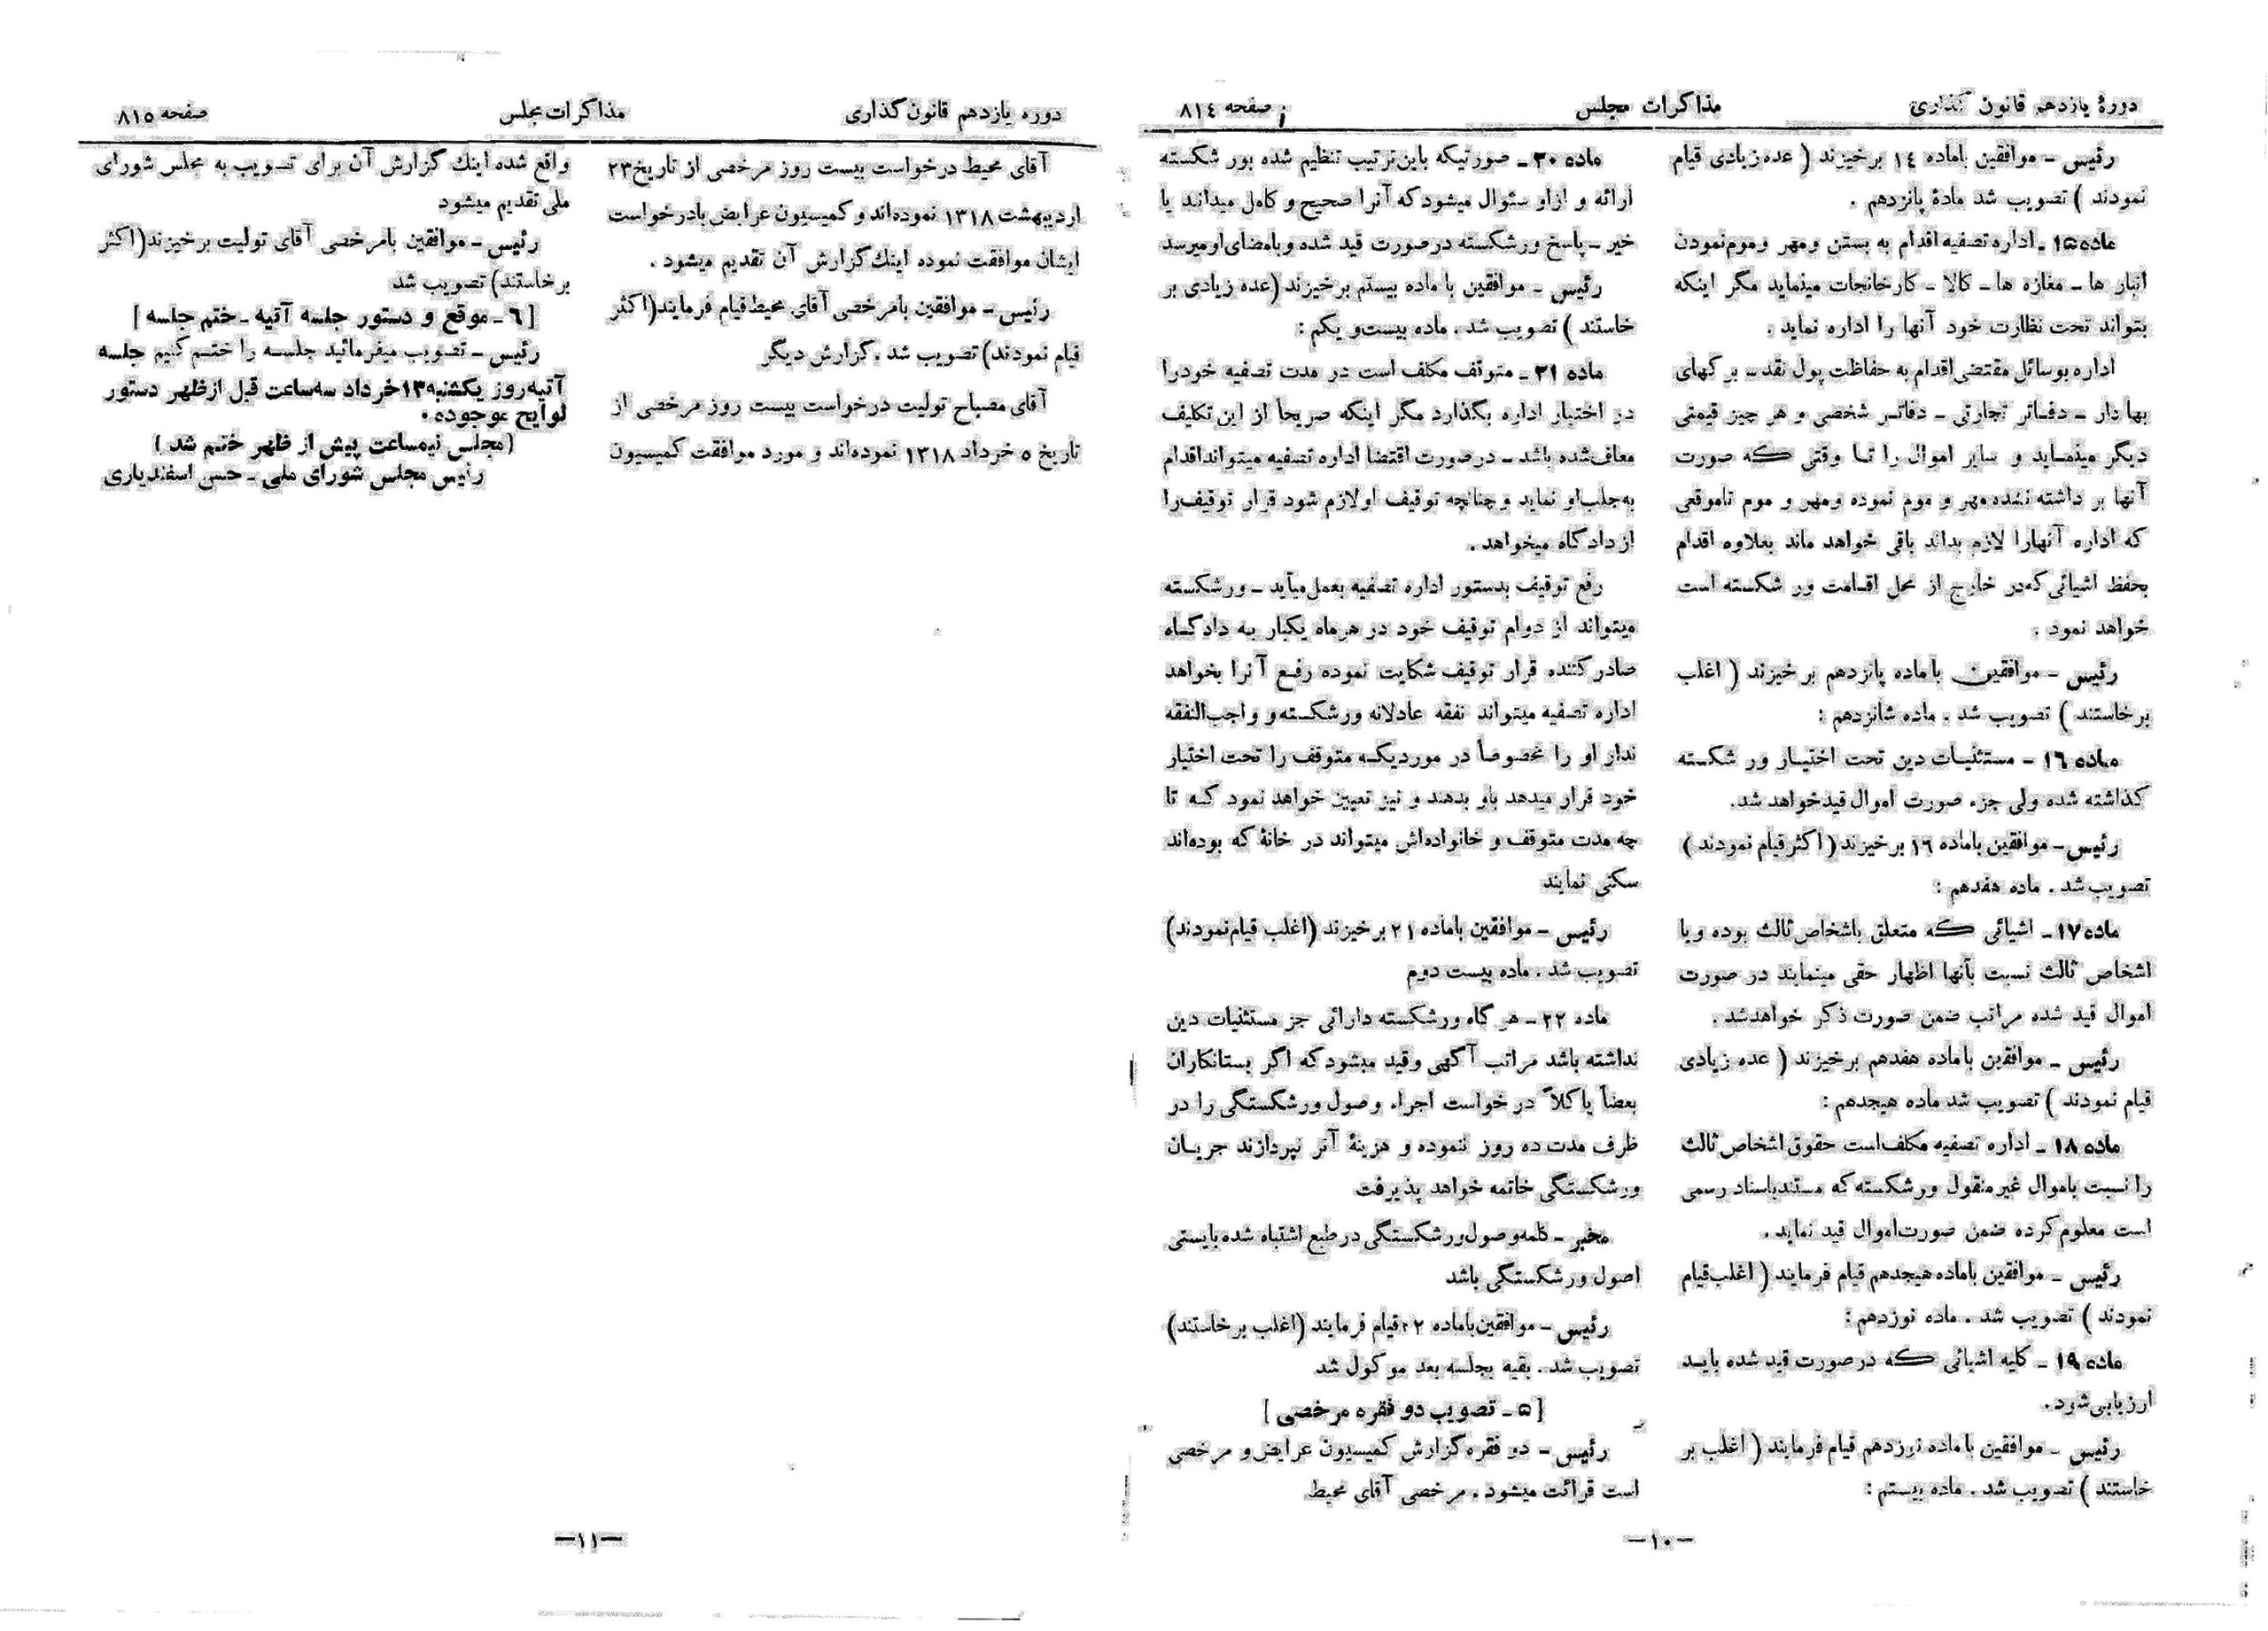 دورۀ یازدهم قانون گذاری
مذاکرات مجلس
صفحه ٨١٤
رئیس - موافقین باماده ١٤ برخیزند ( عده زیادی قیام
نمودند ) تصویب شد مادۀ پانزدهم .
ماده ١٥ ـ اداره تصفیه اقدام به بستن ومهر وموم نمودن
انبار ها ـ مغازه ها ـ کالا ـ کارخانجات مینماید مگر اینکه
بتواند تحت نظارت خود آنها را اداره نماید .
اداره بوسائل مقتضی اقدام به حفاظت پول نقد ـ برگهای
بها دار ـ دفاتر تجارتی ـ دفاتر شخصی و هر چیز قیمتی
دیگر مینماید و سایر اموال را تا وقتی که صورت
آنها بر داشته نشده مهر و موم نموده ومهر و موم تاموقعی
که اداره آنهارا لازم بداند باقی خواهد ماند بعلاوه اقدام
بحفظ اشیائی که در خارج از محل اقامت ور شکسته است
خواهد نمود .
رئیس - موافقین باماده پانزدهم بر خیزند ( اغلب
برخاستند ) تصویب شد . ماده شانزدهم :
ماده ١٦ - مستثنیات دین تحت اختیار ور شکسته
گذاشته شده ولی جزء صورت اموال قیدخواهد شد.
رئیس - موافقین باماده ١٩ برخیزند ( اکثر قیام نمودند )
تصویب شد . ماده هفدهم :
ماده ١٧ـ اشیائی که متعلق باشخاص ثالث بوده و یا
اشخاص ثالث نسبت بآنها اظهار حقی مینمایند در صورت
اموال قید شده مراتب ضمن صورت ذکر خواهدشد .
رئیس ـ موافقین باماده هفدهم برخیزند ( عده زیادی
قیام نمودند ) تصویب شد ماده هیجدهم :
ماده ١٨ ـ اداره تصفیه مکلف است حقوق اشخاص ثالث
را نسبت باموال غیر منقول ورشکسته که مستند باسناد رسمی
است معلوم کرده ضمن صورت اموال قید نماید .
رئیس ـ موافقین باماده هیجدهم قیام فرمایند ( اغلب قیام
نمودند ) تصویب شد . ماده نوزدهم :
ماده ١٩ ـ کلیه اشیائی که در صورت قید شده باید
ارزیابی شود .
رئیس ـ موافقین باماده نوزدهم قیام فرمایند ( اغلب بر
خاستند ) تصویب شد . ماده بیستم :
ماده ٢٠ ـ صورتیکه باین ترتیب تنظیم شده بور شکسته
ارائه و ازاو سئوال میشود که آنرا صحیح و کامل میداند یا
خیر ـ پاسخ ورشکسته درصورت قید شده و بامضای او میرسد
رئیس ـ موافقین با ماده بیستم برخیزند (عده زیادی بر
خاستند ) تصویب شد . ماده بیست و یکم :
ماده ٢١ ـ متوقف مکلف است در مدت تصفیه خودرا
در اختیار اداره بگذارد مگر اینکه صریحاً از این تکلیف
معاف شده باشد ـ درصورت اقتضا اداره تصفیه میتواند اقدام
به جلب او نماید و چنانچه توقیف او لازم شود قرار توقیف را
از دادگاه میخواهد .
رفع توقیف بدستور اداره تصفیه بعمل میآید ـ ورشکسته
میتواند از دوام توقیف خود در هرماه یکبار به دادگاه
صادر کننده قرار توقیف شکایت نموده رفع آنرا بخواهد
اداره تصفیه میتواند نفقه عادلانه ورشکسته و واجب النفقه
ندار او را مخصوصاً در موردیکه متوقف را تحت اختیار
خود قرار میدهد باو بدهد و نیز تعیین خواهد نمود که تا
چه مدت متوقف و خانواده‌اش میتواند در خانۀ که بوده‌اند
سکنی نمایند
رئیس - موافقین باماده ٢١ برخیزند (اغلب قیام نمودند)
تصویب شد . ماده بیست دوم
ماده ٢٢ ـ هر گاه ورشکسته دارائی جز مستثنیات دین
نداشته باشد مراتب آگهی و قید میشود که اگر بستانکاران
بعضاً یا کلاً درخواست اجراء وصول ورشکستگی را در
ظرف مدت ده روز ننموده و هزینۀ آنر نپردازند جریان
ورشکستگی خاتمه خواهد پذیرفت
مخبر ـ کلمه وصول ورشکستگی در طبع اشتباه شده بایستی
اصول ورشکستگی باشد
رئیس - موافقین باماده ٢٢ قیام فرمایند (اغلب برخاستند)
تصویب شد . بقیه بجلسه بعد موکول شد
[ ٥ ـ تصویب دو فقره مرخصی ]
رئیس - دو فقره گزارش کمیسیون عرایض و مرخصی
است قرائت میشود . مرخصی آقای محیط
ـ١٠ـ
دوره یازدهم قانون گذاری
مذاکرات مجلس
صفحه ٨١٥
آقای محیط درخواست بیست روز مرخصی از تاریخ ٢٣
اردیبهشت ١٣١٨ نموده‌اند و کمیسیون عرایض بادرخواست
ایشان موافقت نموده اینك گزارش آن تقدیم میشود .
رئیس - موافقین بامرخصی آقای محیط قیام فرمایند(اکثر
قیام نمودند) تصویب شد . گزارش دیگر
آقای مصباح تولیت درخواست بیست روز مرخصی از
تاریخ ٥ خرداد ١٣١٨ نموده‌اند و مورد موافقت کمیسیون
واقع شده اینك گزارش آن برای تصویب به مجلس شورای
ملی تقدیم میشود
رئیس - موافقین بامرخصی آقای تولیت برخیزند(اکثر
برخاستند) تصویب شد
[ ٦ ـ موقع و دستور جلسه آتیه ـ ختم جلسه ]
رئیس - تصویب میفرمائید جلسه را ختم کنیم جلسه
آتیه روز یکشنبه ١٣ خرداد سه ساعت قبل از ظهر دستور
لوایح موجوده .
(مجلس نیمساعت پیش از ظهر ختم شد )
رئیس مجلس شورای ملی ـ حسن اسفندیاری
ـ١١ـ